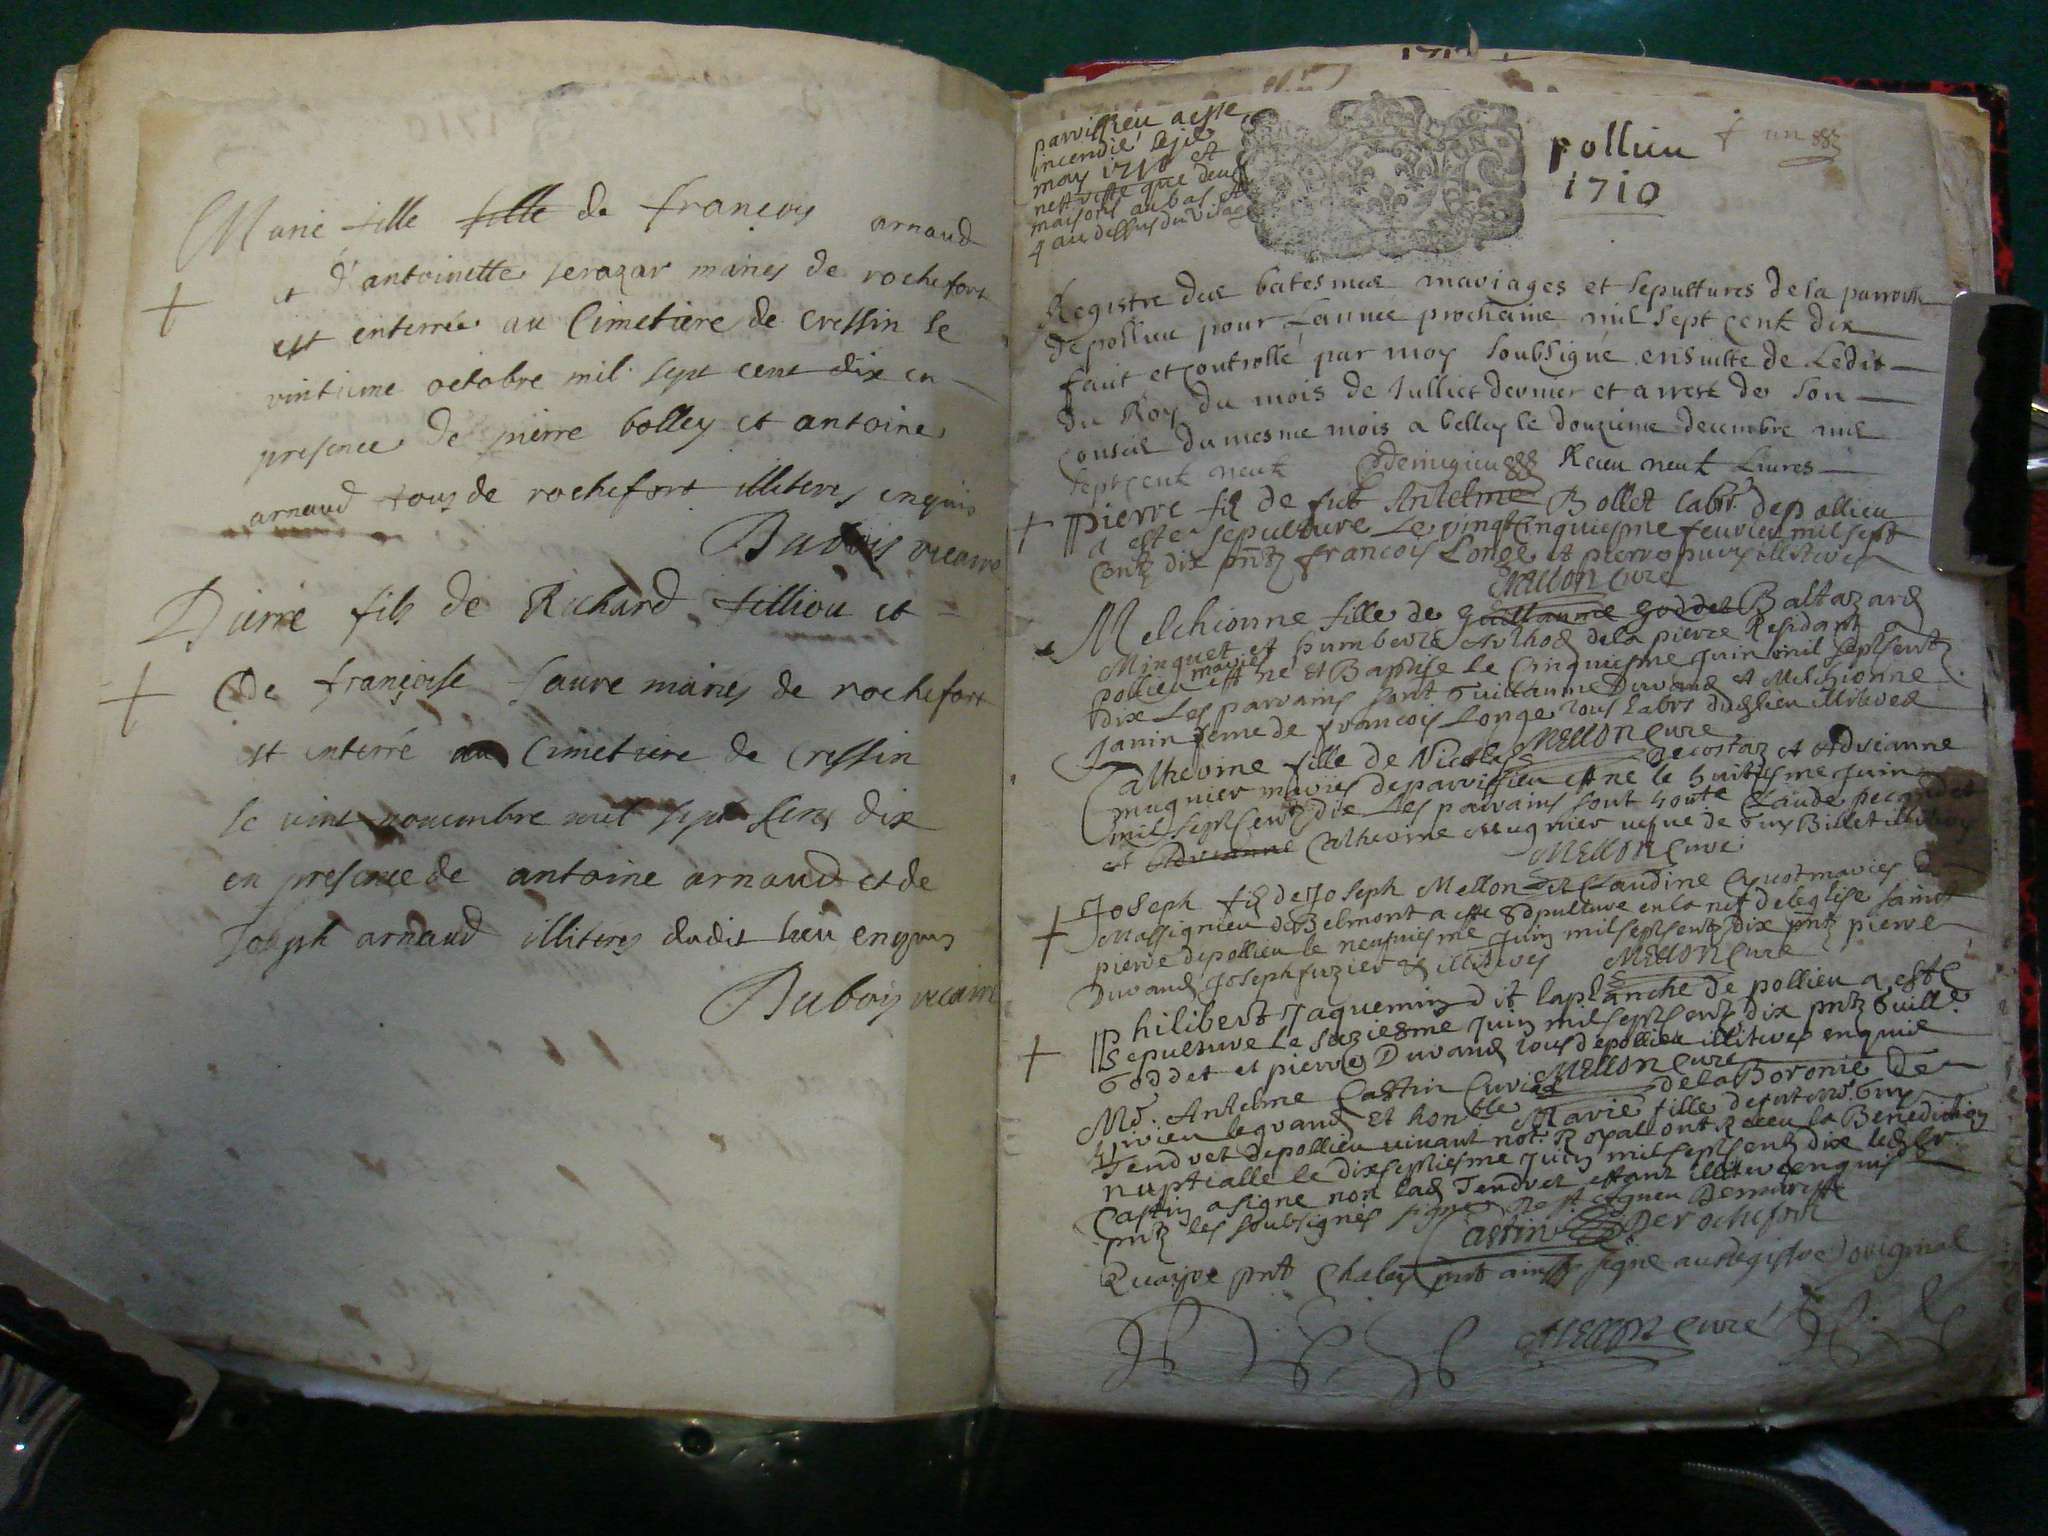 Marie fille fille de françois arnaud
et d'antoinette serozar mariés de rochefort
est enterrée au Cimetiere de Cressin le
vintieme octobre mil sept cent dix en
presence de pierre bolley et antoine
arnaud tous de rochefort illiteres enquis
Dubois vicaire
Pierre fils de Richard filliou et
De françoise faure mariés de rochefort
est enterré au Cimetiere de Cressin
le vint novembre mil sept Cens dix
en presence de antoine arnaud et de
Joseph arnaud illiteres dudit lieu enquis
Dubois vicaire
parvissieu a esté
incendié le
may 1710 et
n'est resté que deux
maisons au bas et
4 au dessus du vilage
pollieu
1710
Registre des batesmes mariages et sepultures de la parroisse
de pollieu pour l'année prochaine mil sept cent dix
fait et controllé par moy soubsigné ensuitte de Ledit
du Roy du mois de Julliet dernier et arrest de son
Conseil du mesme mois a belley le douzieme decembre mil
sept cent neuf Receu neuf Livres
pierre fis de fut Antelme Bollet labr. de pollieu
a este sepulture Le vingt cinquiesme fevrier mil sept
centz dix pntz francois Longe et pierre puys illiteres
Mellon Curé
Melchionne fille de guillaume goddet Baltazard
Minguet et humberte Arthod de la pierre Residant a
pollieu mariés est né et Baptise le Cinquiesme Juin mil sept sentz
dix Les parrains sont Guillaume Durand et Melchionne
Janin feme de francois Longe tous labrs dudit lieu illiteres
Mellon Curé
Catherine fille de Nicolas Decostaz et Adrianne
mugnier mariés de parvissieu est né le huitiesme Juin
mil sept sentz dix Les parrains sont honte Claude
et Adrianne Catherine Mugnier vefue de Guy Billet illiteres
Mellon Curé
Joseph fis de Joseph Mellon et Claudine Cuot mariés de
Massignieu de Belmont a esté sepulture en la nef de leglise saint
pierre de pollieu le neufviesme Juin mil sept sentz dix pntz pierre
Durand Joseph fuzier illiteres Mellon Curé
Philibert Jaquemin dit laplanche de pollieu a esté
sepulture Le seziesme Juin mil sept sentz dix pntz Guille.
Goddet et pierre Durand tous de pollieu illiteres enquis
Mellon Curé
Mr. Antelme Castin de la Boronie de
Virieu le grand et honble Marie fille de fut Mr. Guy
Tendret de pollieu vivant not. Royal ont Receu la Benediction
nuptialle le dixseptiesme Juin mil sept sentz dix led Sr
Castin a signe non lad Tendret estant illitere enquis
pntz les soubsignés
Castin De rochefort
pnt Chaley pnt ainsy signé au Registre original
Mellon Curé